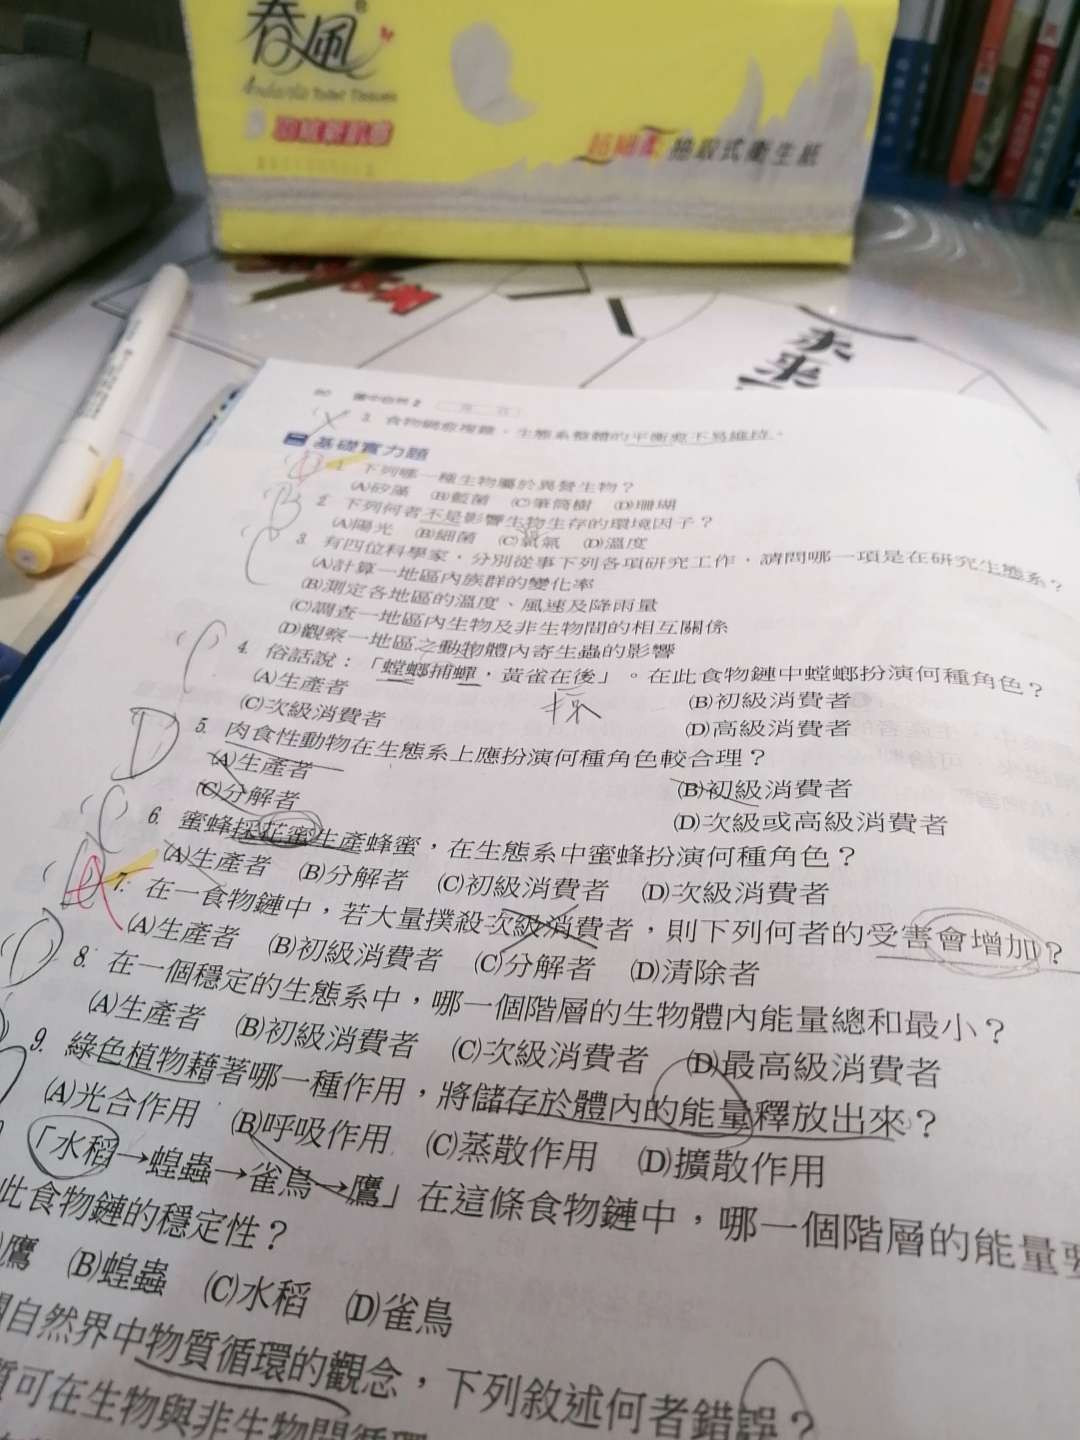 春風
Andante Toilet Tissues
超細柔 抽取式衛生紙
未來
80 國中自然2
3. 食物網愈複雜，生態系整體的平衡愈不易維持。
二 基礎實力題
1. 下列哪一種生物屬於異營生物？
(A)矽藻 (B)藍菌 (C)筆筒樹 (D)珊瑚
2. 下列何者不是影響生物生存的環境因子？
(A)陽光 (B)細菌 (C)氧氣 (D)溫度
3. 有四位科學家，分別從事下列各項研究工作，請問哪一項是在研究生態系？
(A)計算一地區內族群的變化率
(B)測定各地區的溫度、風速及降雨量
(C)調查一地區內生物及非生物間的相互關係
(D)觀察一地區之動物體內寄生蟲的影響
4. 俗話說：「螳螂捕蟬，黃雀在後」。在此食物鏈中螳螂扮演何種角色？
(A)生產者 (B)初級消費者
(C)次級消費者 (D)高級消費者
D 5. 肉食性動物在生態系上應扮演何種角色較合理？
(A)生產者 (B)初級消費者
(C)分解者 (D)次級或高級消費者
C 6. 蜜蜂採花蜜生產蜂蜜，在生態系中蜜蜂扮演何種角色？
(A)生產者 (B)分解者 (C)初級消費者 (D)次級消費者
7. 在一食物鏈中，若大量撲殺次級消費者，則下列何者的受害會增加？
(A)生產者 (B)初級消費者 (C)分解者 (D)清除者
D 8. 在一個穩定的生態系中，哪一個階層的生物體內能量總和最小？
(A)生產者 (B)初級消費者 (C)次級消費者 (D)最高級消費者
9. 綠色植物藉著哪一種作用，將儲存於體內的能量釋放出來？
(A)光合作用 (B)呼吸作用 (C)蒸散作用 (D)擴散作用
「水稻→蝗蟲→雀鳥→鷹」在這條食物鏈中，哪一個階層的能量要
此食物鏈的穩定性？
鷹 (B)蝗蟲 (C)水稻 (D)雀鳥
自然界中物質循環的觀念，下列敘述何者錯誤？
質可在生物與非生物間循環